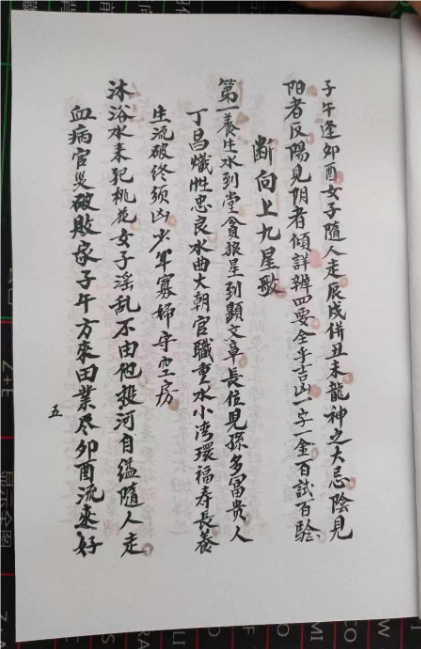 子午逢卯酉女子隨人走辰戌併丑未龍神之大忌陰見
阳者反陽見阴者傾詳辨四要全乎吉凶一字一金百試百驗
断向上九星歌
第一養生水到堂貪狼星到顯文章長位見孫多冨贵人
丁昌熾性忠良水曲大朝官職重水小湾環福寿長養
生流破终须凶少年寡婦守空房
沐浴水来犯桃花女子淫乱不由他投河自缢隨人走
血病官災破敗家子午方來田業尽卯酉流来好
五